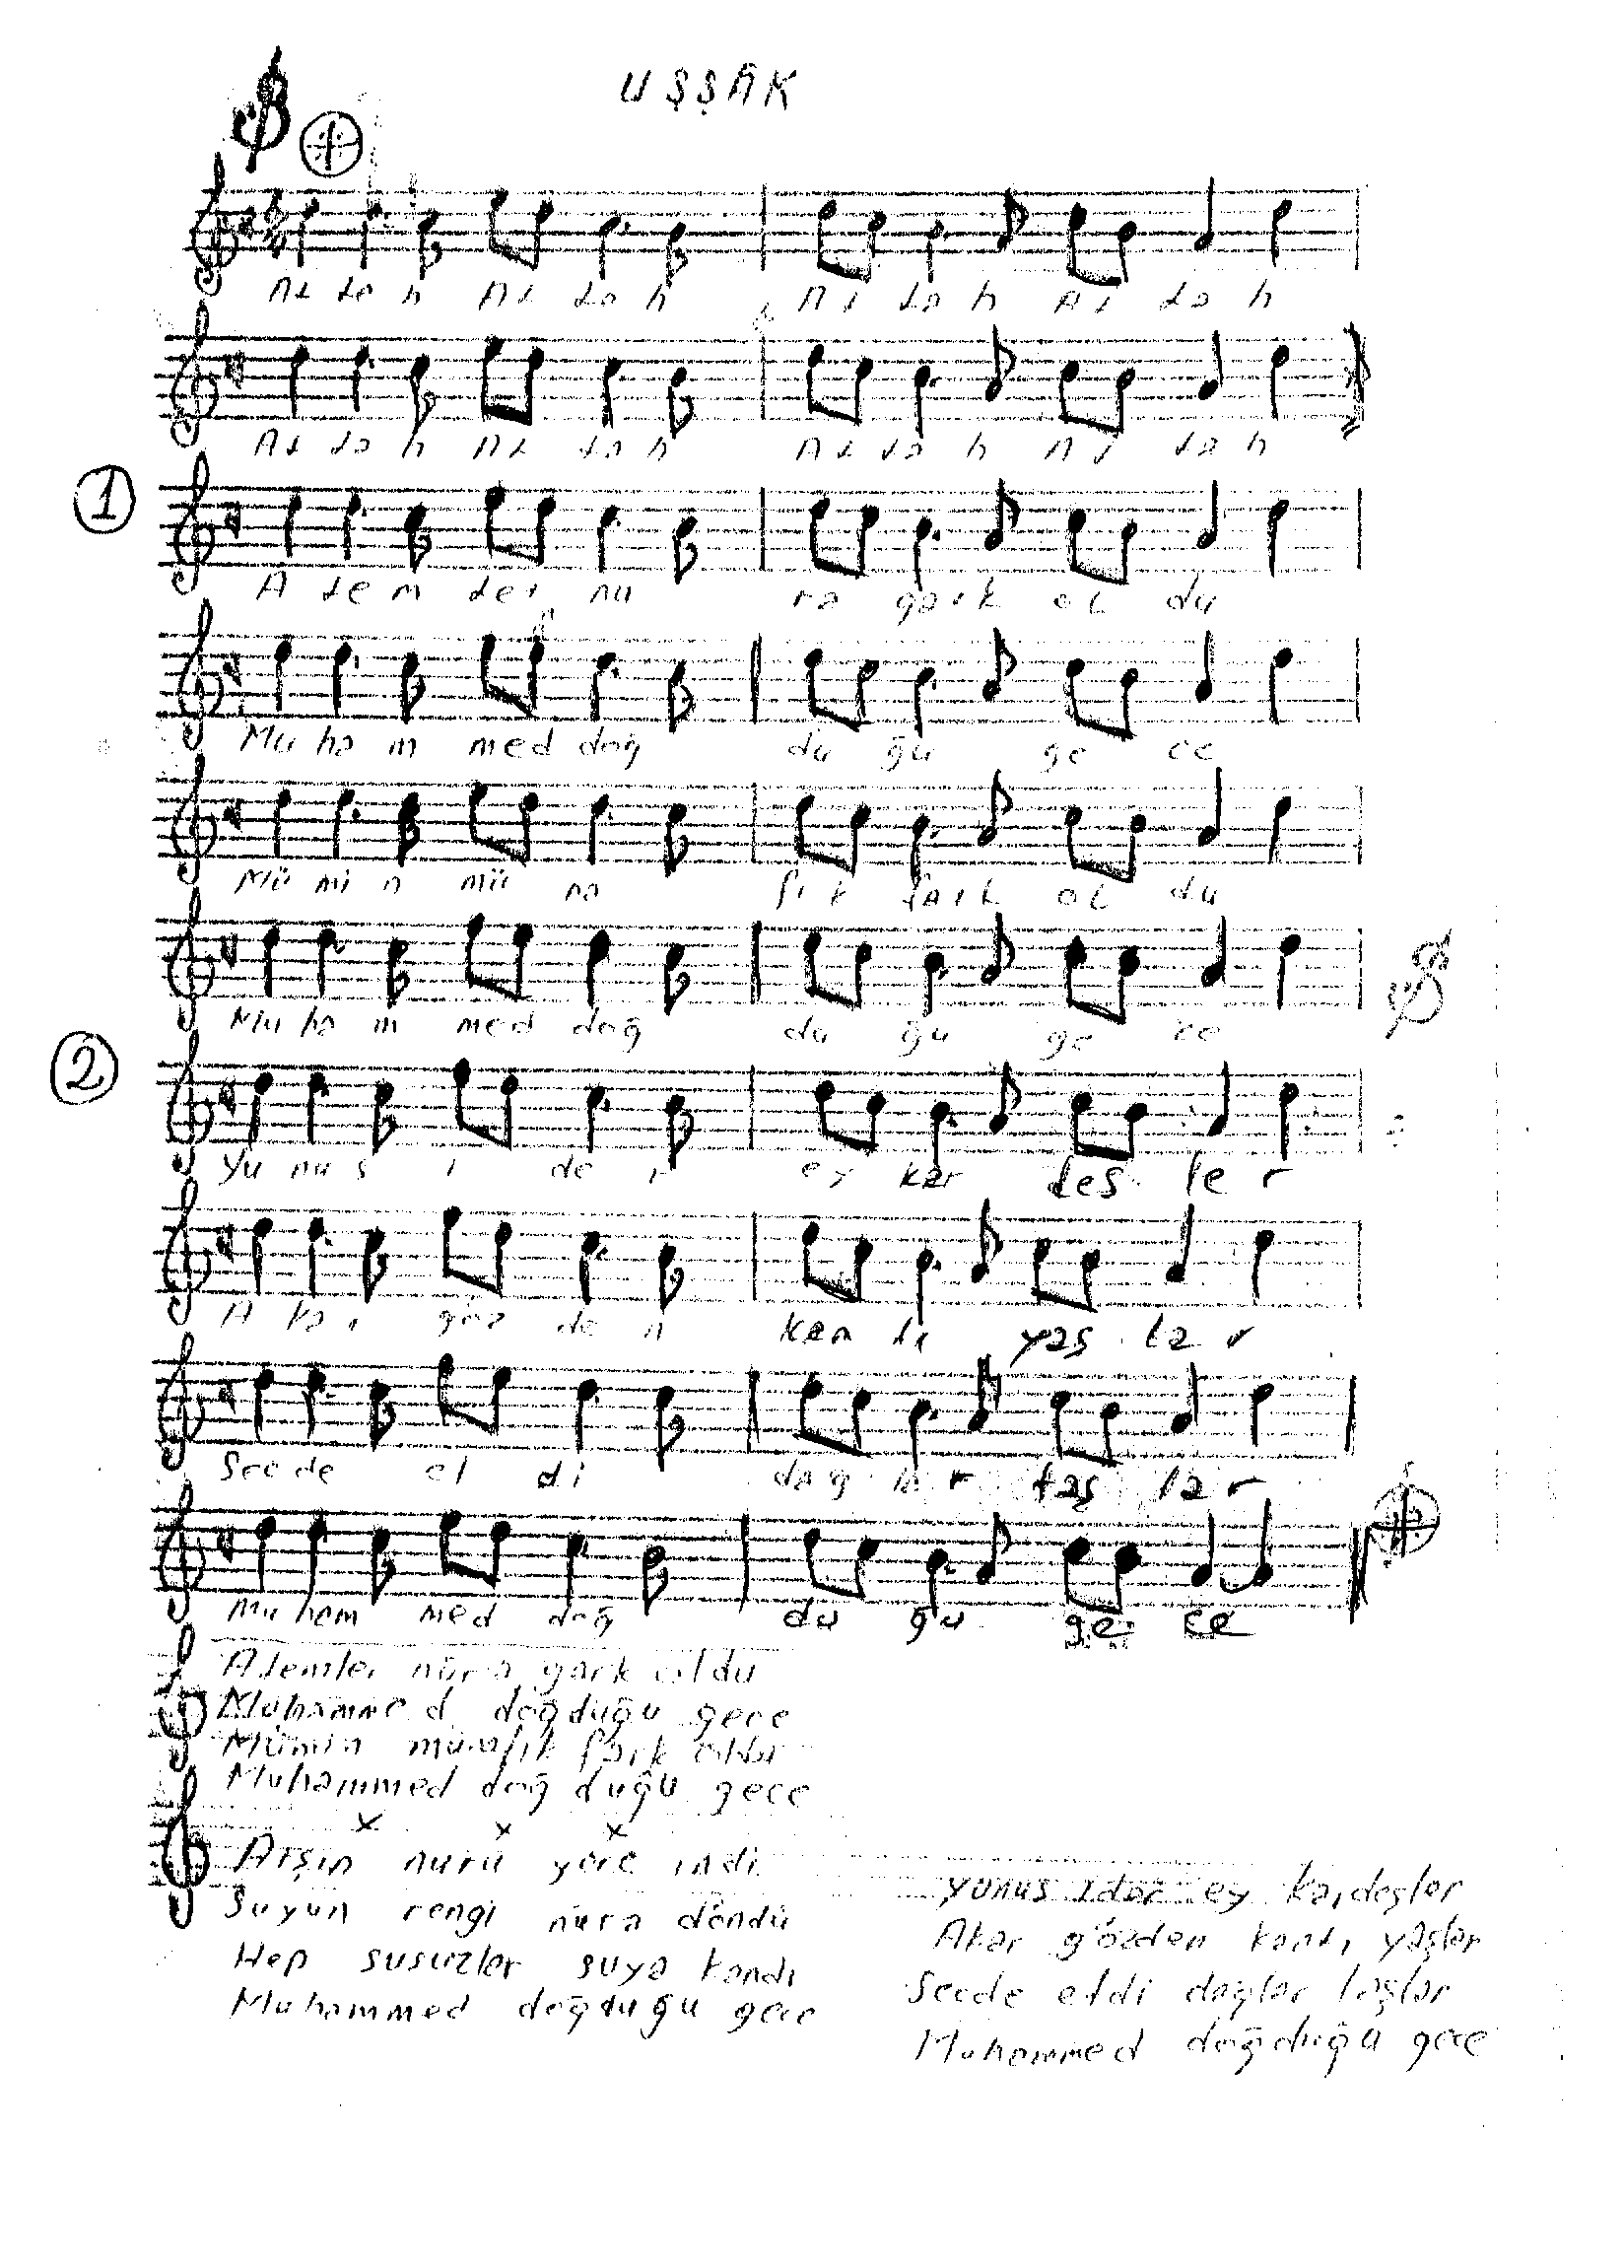 UŞŞÂK
Al la h Al la h Al la h Al la h
Al la h Al la h Al la h Al la h
1
A lem ler nu ra gark ol du
Mu ha m med doğ du ğu ge ce
Mü mi n mü na fı k fark ol du
Mu ha m med doğ du ğu ge ce
2
Yu nu s i de r ey kar deş le r
A ka r göz de n kan lı yaş la r
Sec de et di dağ la r taş la r
Mu ham med doğ du ğu ge ce
Alemler nûra gark oldu
Muhammed doğduğu gece
Mümin münafık fark oldu
Muhammed doğduğu gece
x x x
Arşın nuru yere indi
Suyun rengi nûra döndü
Hep susuzlar suya kandı
Muhammed doğduğu gece
Yunus ider ey kardeşler
Akar gözden kanlı yaşlar
Secde etdi dağlar taşlar
Muhammed doğduğu gece